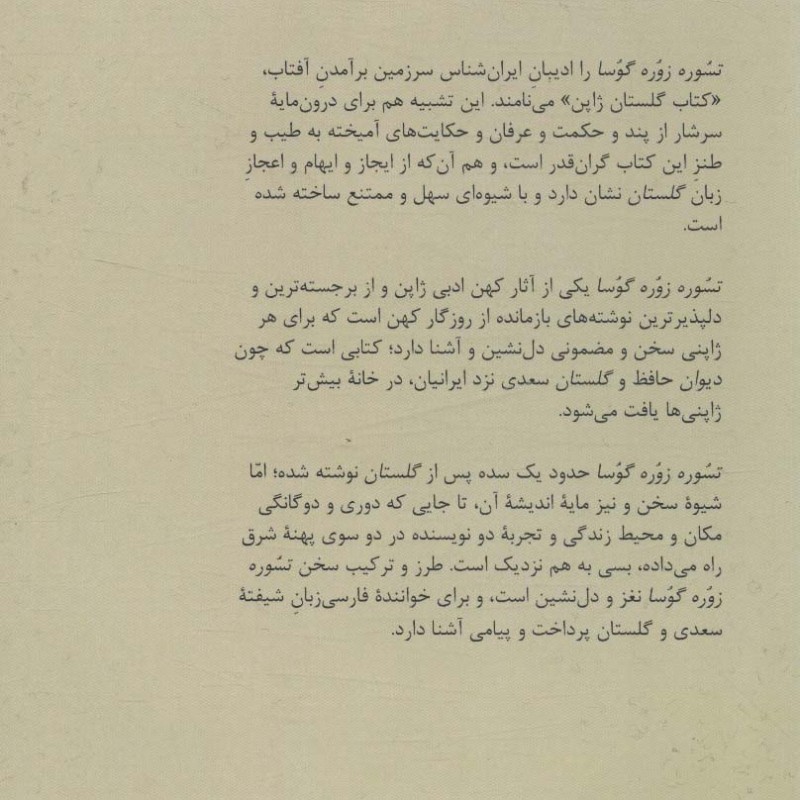 تسُوره زوُره گوُسا را ادیبانِ ایران‌شناس سرزمین برآمدنِ آفتاب،
«کتاب گلستان ژاپن» می‌نامند. این تشبیه هم برای درون‌مایهٔ
سرشار از پند و حکمت و عرفان و حکایت‌های آمیخته به طیب و
طنزِ این کتاب گران‌قدر است، و هم آن‌که از ایجاز و ایهام و اعجازِ
زبان گلستان نشان دارد و با شیوه‌ای سهل و ممتنع ساخته شده
است.
تسُوره زوُره گوُسا یکی از آثار کهن ادبی ژاپن و از برجسته‌ترین و
دلپذیرترین نوشته‌های بازمانده از روزگار کهن است که برای هر
ژاپنی سخن و مضمونی دل‌نشین و آشنا دارد؛ کتابی است که چون
دیوان حافظ و گلستان سعدی نزد ایرانیان، در خانهٔ بیش‌تر
ژاپنی‌ها یافت می‌شود.
تسُوره زوُره گوُسا حدود یک سده پس از گلستان نوشته شده؛ امّا
شیوهٔ سخن و نیز مایهٔ اندیشهٔ آن، تا جایی که دوری و دوگانگی
مکان و محیط زندگی و تجربهٔ دو نویسنده در دو سوی پهنهٔ شرق
راه می‌داده، بسی به هم نزدیک است. طرز و ترکیب سخن تسُوره
زوُره گوُسا نغز و دل‌نشین است، و برای خوانندهٔ فارسی‌زبانِ شیفتهٔ
سعدی و گلستان پرداخت و پیامی آشنا دارد.